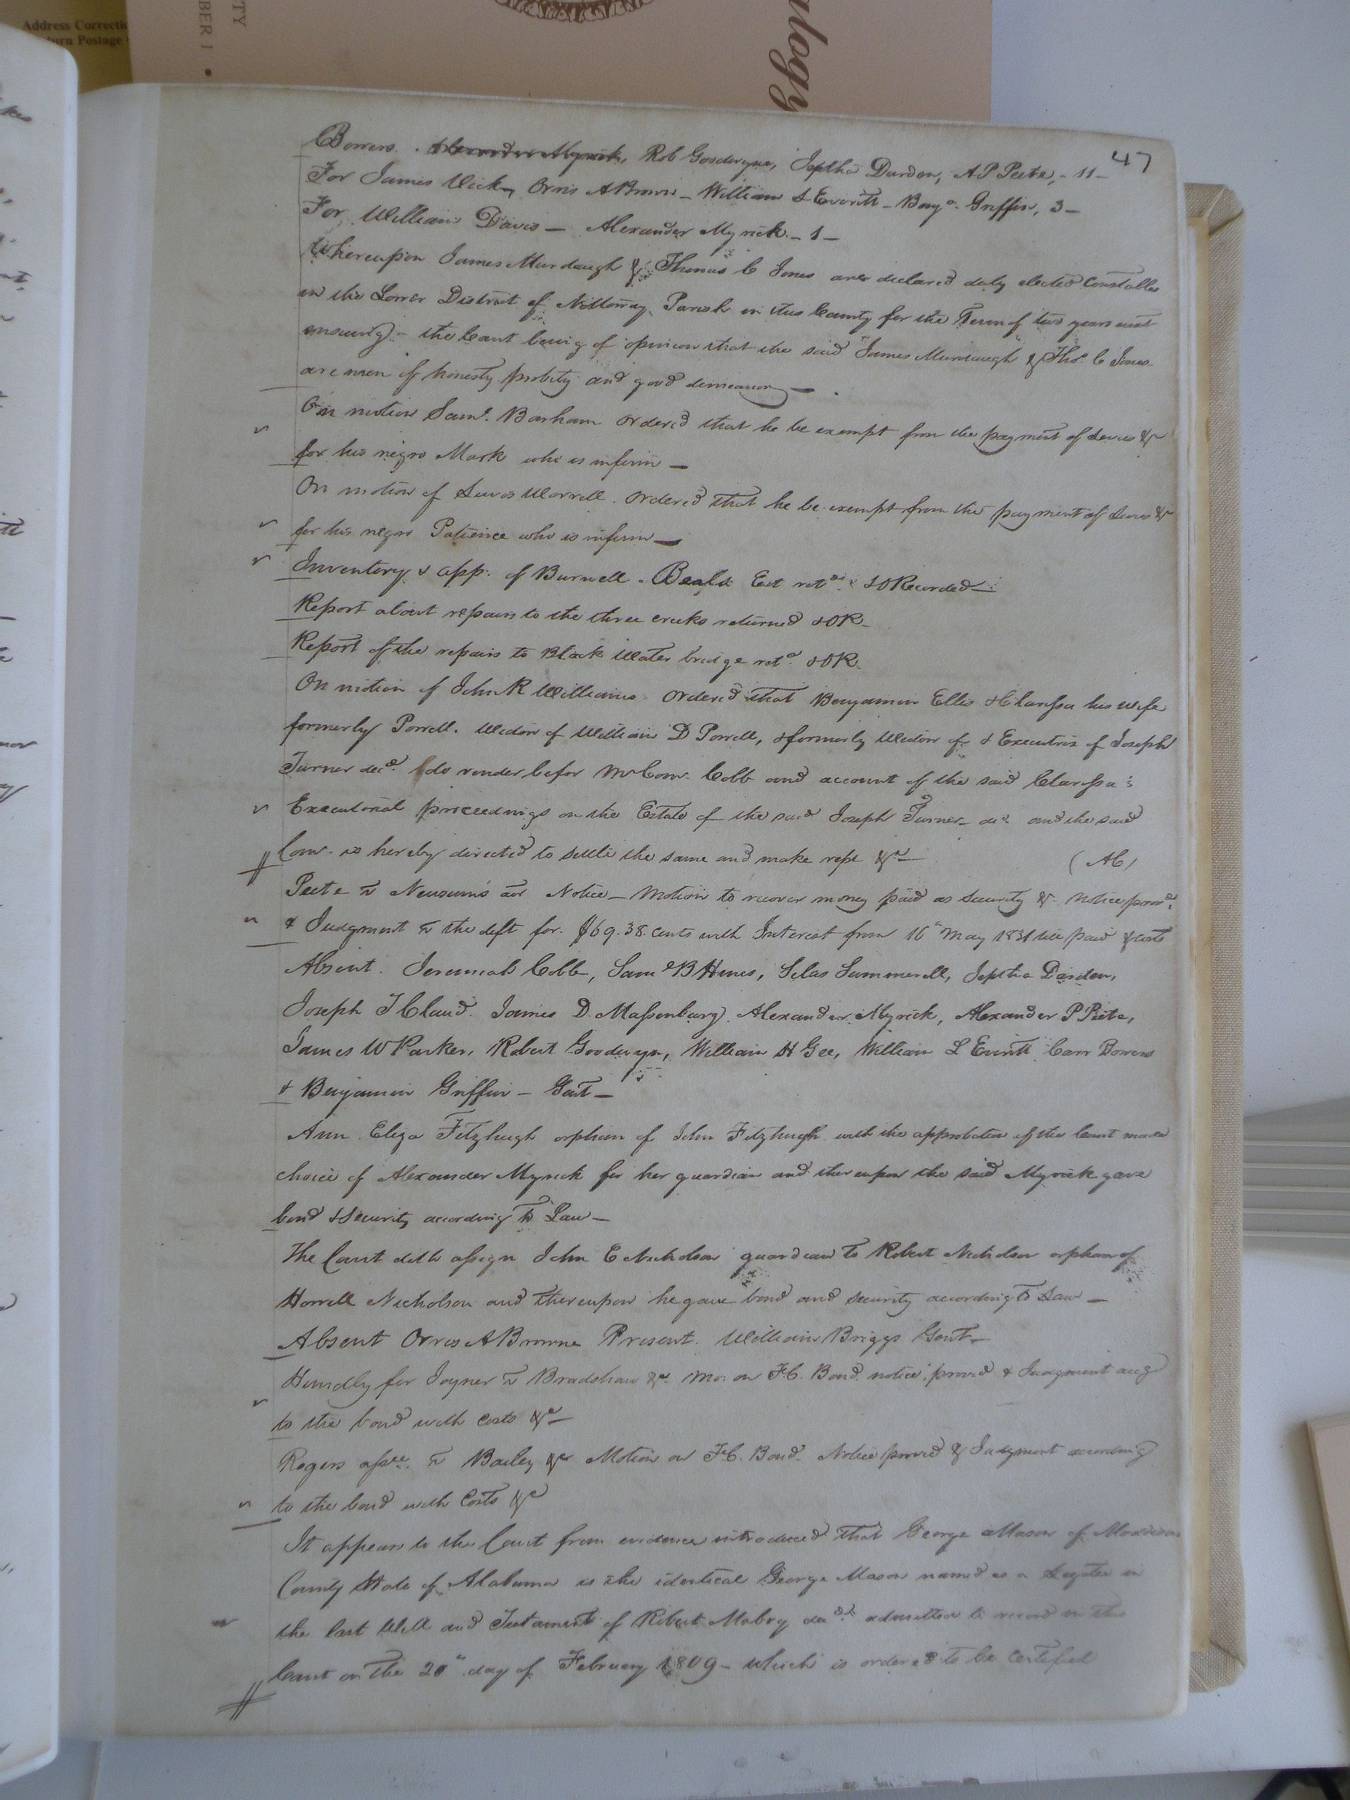 Address Correctio
turn Postage
TY
BER 1 •
ulogy
47
Bowers. Alexander Myrick, Rob Goodwyn, Jeptha Darden, A P Peete, - 11 -
For James Vick, Orris A Brown - William L Everitt - Benja. Griffin, 3 -
For William Davis - Alexander Myrick - 1 -
Whereupon James Murdaugh & Thomas C Jones are declared duly elected Constables
in the Lower District of Nottoway Parish in this County for the Term of two years next
ensuing - the Court being of opinion that the said James Murdaugh & Thos. C Jones
are men of honesty probity and good demeanor -
On motion Saml. Barham ordered that he be exempt from the payment of Levies &c
for his negro Mark who is infirm -
On motion of Lewis Worrell. ordered that he be exempt from the payment of Levies &c
for his negro Patience who is infirm -
Inventory & app: of Burwell Beals Est retd. & O Recorded -
Report about repairs to the three creeks returned & OR -
Report of the repairs to Black Water bridge retd. & OR.
On motion of John R Williams ordered that Benjamin Ellis & Clarissa his wife
formerly Powell. Widow of William D Powell, & formerly Widow of & Executrix of Joseph
Turner decd. do render befor Mr Comr. Cobb and account of the said Clarissa's
Executorial proceedings on the Estate of the said Joseph Turner decd and the said
Comr. is hereby directed to settle the same and make rept &c - (AC)
Peete vs Newsum's Notice - Motion to recover money paid as security &c notice provd.
& Judgment vs the deft for $69.38 cents with Interest from 16th May 1831 till paid & costs
Absent. Jeremiah Cobb, Saml B Hines, Silas Summerell, Jeptha Darden,
Joseph T Claud. James D. Massenburg. Alexander Myrick, Alexander P Peete,
James W Parker, Robert Goodwyn, William H Gee, William L Everitt Carr Bowers
& Benjamin Griffin - Gent -
Ann Eliza Fitzhugh orphan of John Fitzhugh with the approbation of the Court made
choice of Alexander Myrick for her guardian and thereupon the said Myrick gave
bond & Security according to Law -
The Court doth assign John E Nicholson guardian to Robert Nicholson orphan of
Howell Nicholson and thereupon he gave bond and security according to Law -
Absent Orris A Browne Present. William Briggs Gent -
for Joyner vs Bradshaw &c. Mo: on F.C. Bond notice proved & Judgment accg
to the bond with costs &c -
Rogers assee. vs Bailey &c Motion on F.C. Bond. Notice proved & Judgment according
to the bond with Costs &c
It appears to the Court from evidence introduced that George Mason of Maddison
County State of Alabama is the identical George Mason named as a Legatee in
the last Will and Testament of Robert Mabry decd. admitted to record in this
Court on the 20th day of February 1809 - which is ordered to be Certified